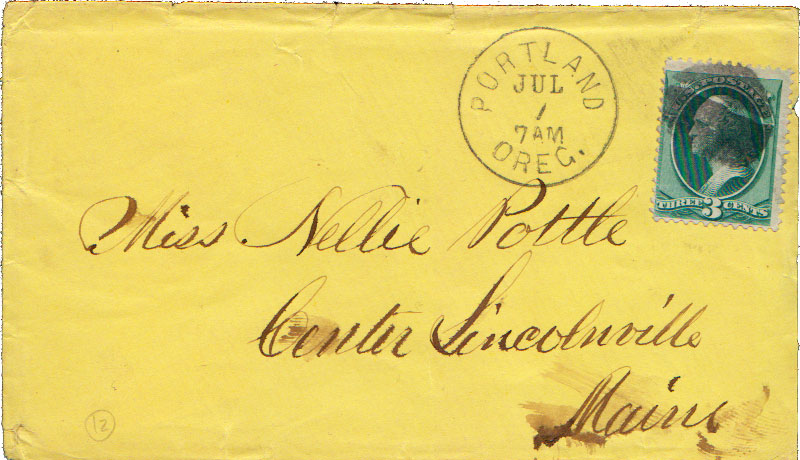 PORTLAND
JUL
1
7AM
OREG.
THREE 3 CENTS
Miss Nellie Pottle
Center Lincolnville
Maine
12